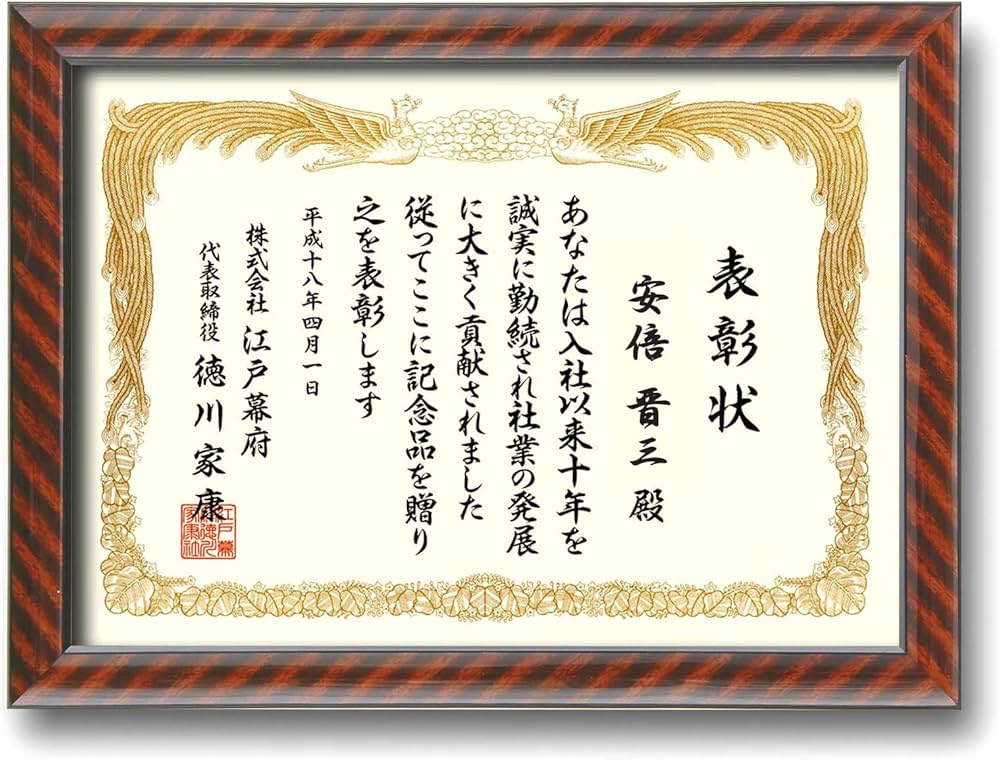 表彰状
安倍晋三殿
あなたは入社以来十年を
誠実に勤続され社業の発展
に大きく貢献されました
従ってここに記念品を贈り
之を表彰します
平成十八年四月一日
株式会社 江戸幕府
代表取締役 徳川家康
江戸幕
徳川
家康社